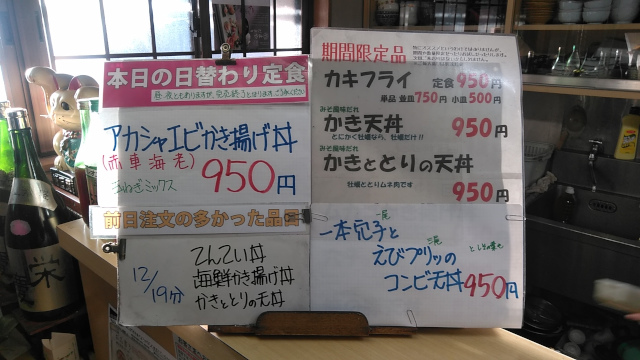 本日の日替わり定食
昼・夜ともありますが、完売終了となります。ご了承ください
アカシャエビかき揚げ丼
(赤車海老)
玉ねぎミックス
950円
前日注文の多かった品書
12/19分
てんてい丼
海鮮かき揚げ丼
かきととりの天丼
期間限定品
カキフライ 定食950円
単品 並皿750円 小皿500円
みそ風味だれ
かき天丼 950円
とにかく牡蠣なら、牡蠣だけ!!
みそ風味だれ
かきととりの天丼
牡蠣ととりムネ肉です
950円
一尾
一本穴子と
えびプリッの
コンビ天丼950円
栄